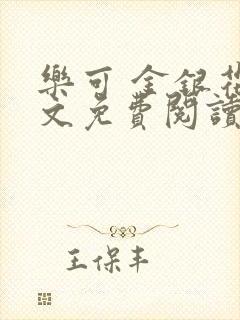 樂可 金銀花
文免費閱讀
王保丰